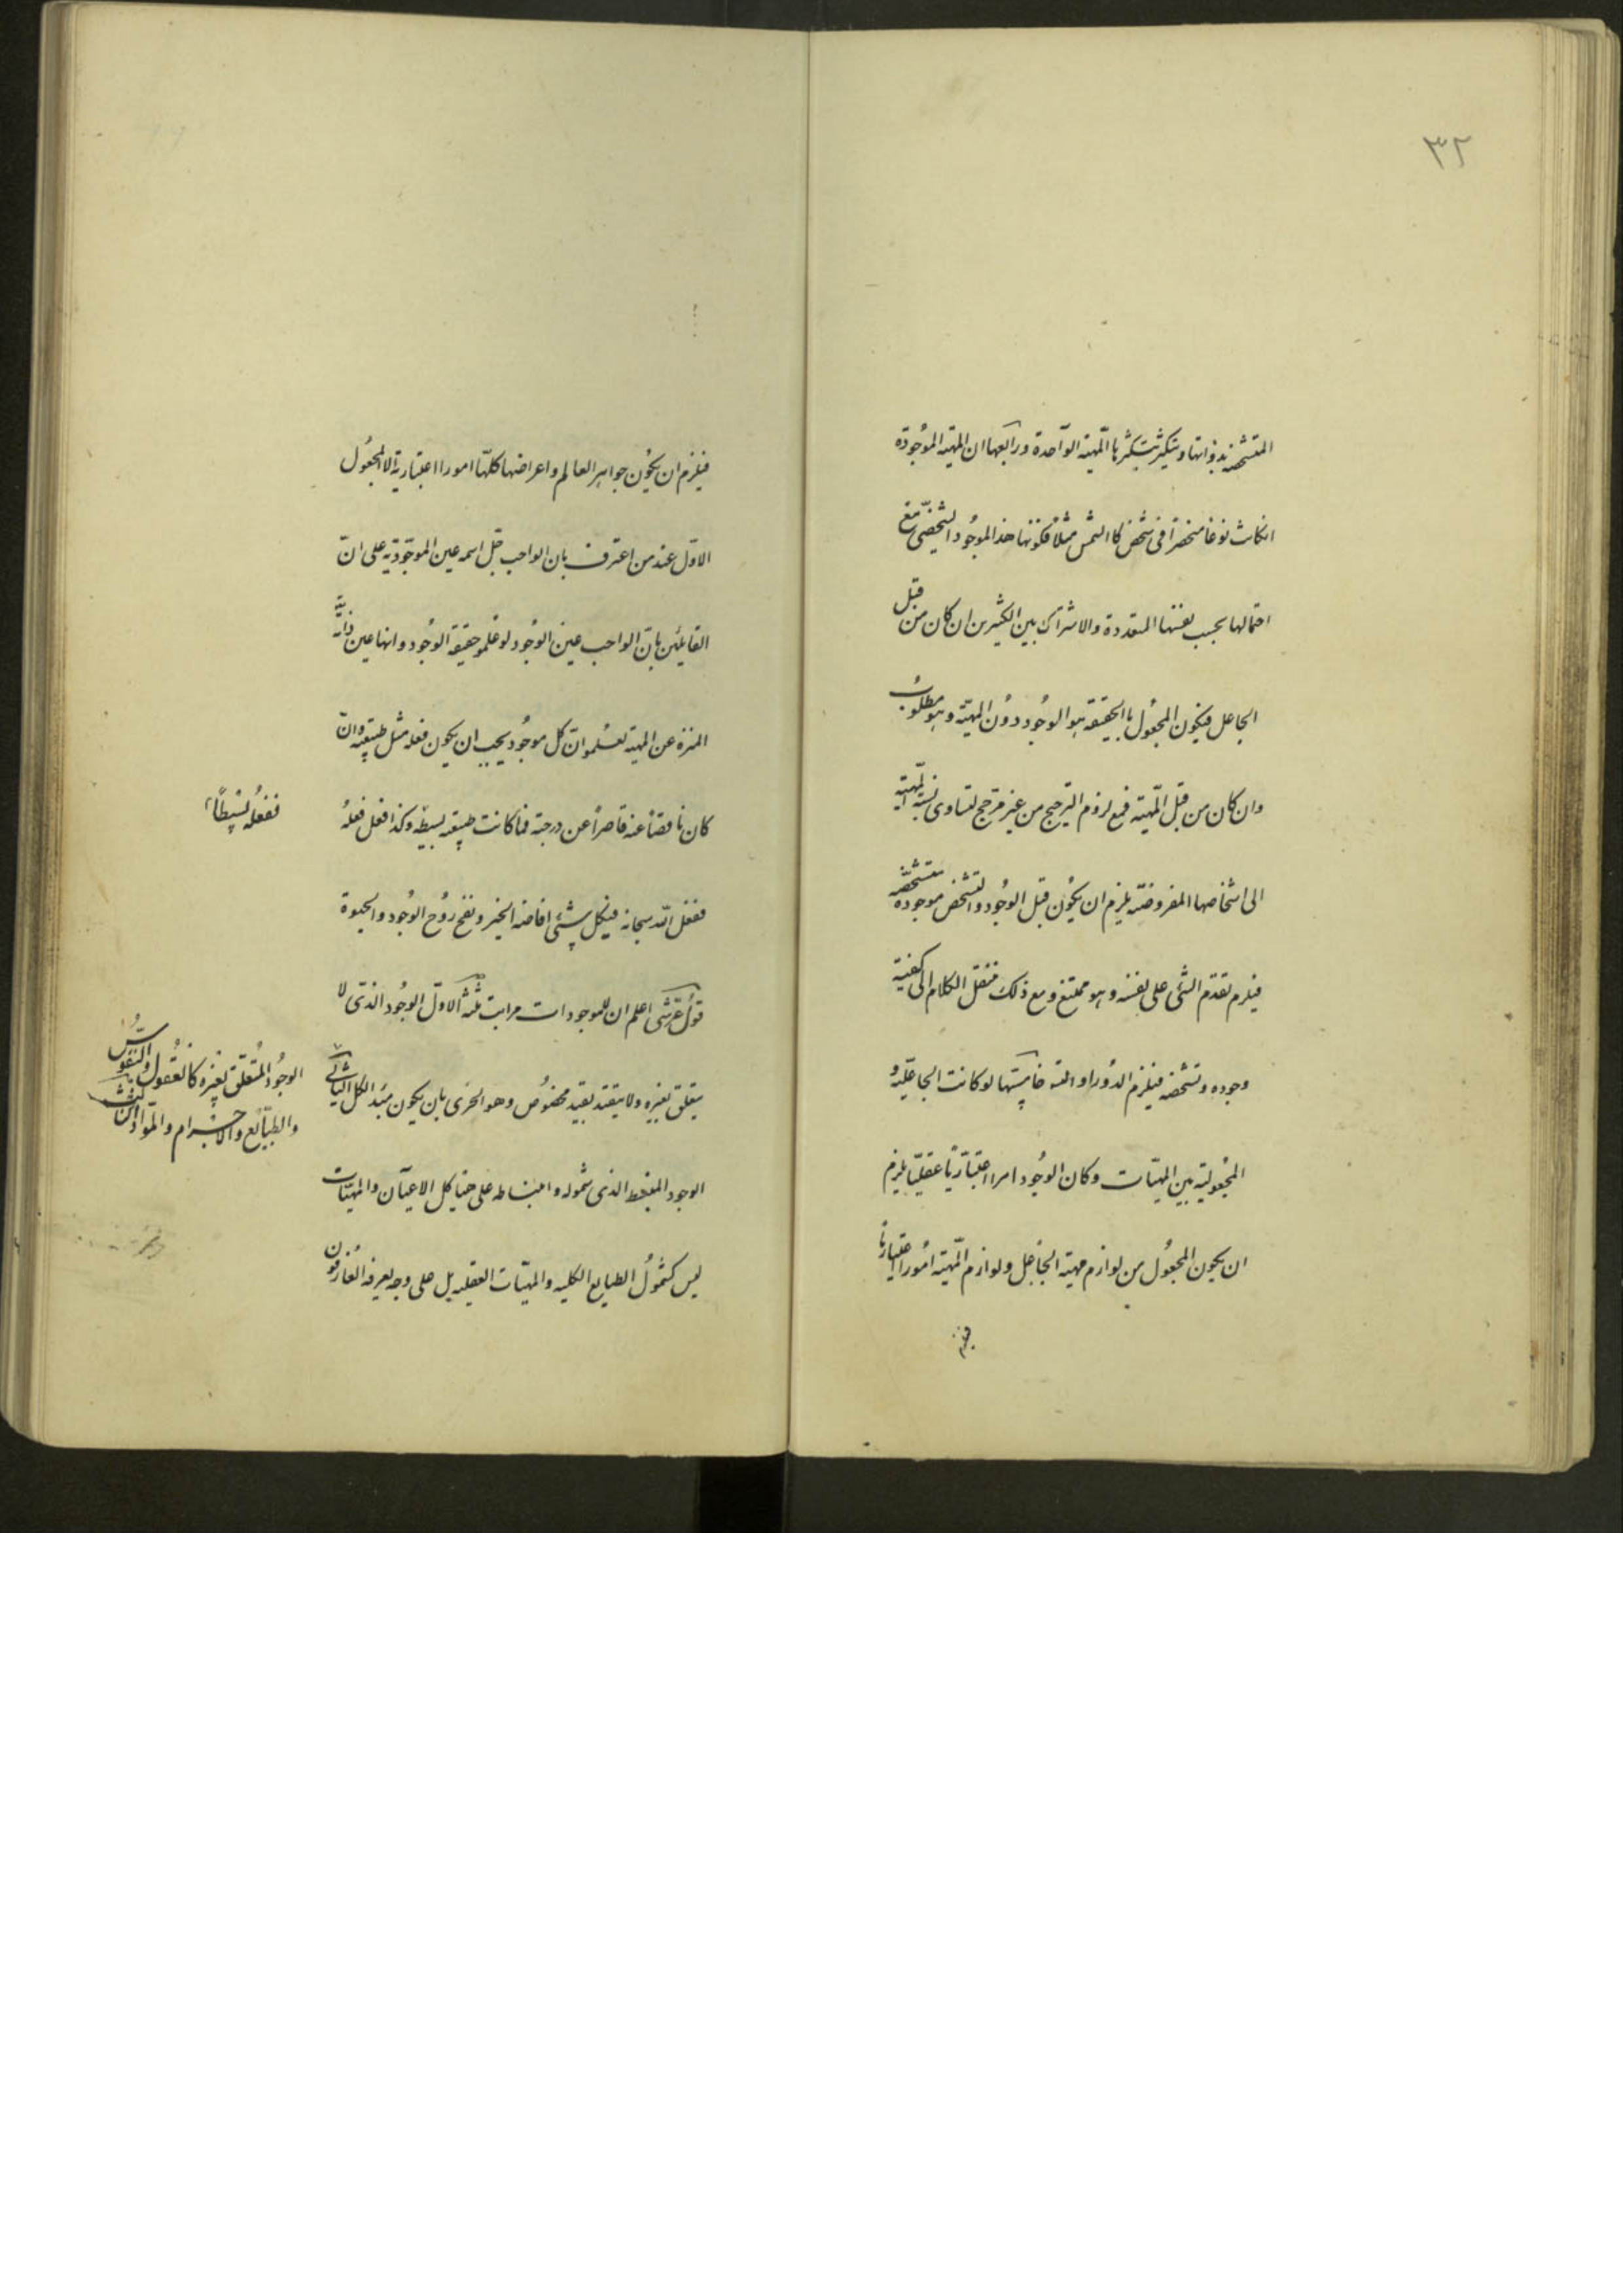 ٣٢
المتشخصة بذواتها وتتكثر بتكثرها المهية الواحدة ورابعها ان المهية الموجودة
انكانت نوعا منحصرا فى شخص كالشمس مثلا فكونها هذا الموجود الشخصى مع
احتمالها بحسب نفسها المتعددة والاشتراك بين الكثيرين ان كان من قبل
الجاعل فيكون المجعول بالحقيقة هو الوجود دون المهية وهو مطلوب
وان كان من قبل المهية فمع لزوم الترجيح من غير مرجح لتساوى نسبة المهية
الى اشخاصها المفروضة يلزم ان يكون قبل الوجود والتشخص موجودة متشخصة
فيلزم تقدم الشئ على نفسه وهو ممتنع ومع ذلك فننقل الكلام الى كيفية
وجوده وتشخصه فيلزم الدور او التسـ خامستها لو كانت الجاعلية و
المجعولية بين المهيات وكان الوجود امرا اعتباريا عقليا يلزم
ان يكون المجعول من لوازم مهية الجاعل ولوازم المهية امورا اعتبارية
فيلزم
فيلزم ان يكون جواهر العالم واعراضها كلها امورا اعتبارية الا المجعول
الاول عند من اعترف بان الواجب جل اسمه عين الموجودية على ان
القايلين بان الواجب عين الوجود لو علموا حقيقة الوجود وانها عين ذاته
المنزه عن المهية لعلموا ان كل موجود يجب ان يكون فعله مثل طبيعته وان
كان ناقصا عنه قاصرا عن درجته فما كانت طبيعته بسيطة وكذا فعل فعله
ففعله بسيطا
ففعل الله سبحانه فى كل شئ افاضة الخير ونفخ روح الوجود والحيوة
قول عرشى اعلم ان للموجودات مراتب ثلثة الاول الوجود الذى لا
يتعلق بغيره ولا يتقيد بقيد مخصوص وهو الحرى بان يكون مبدء الكل الثانى
الوجود المتعلق بغيره كالعقول والنفوس
والطبايع والاجرام والمواد الثالث
الوجود المنبسط الذى شموله وانبساطه على هياكل الاعيان والمهيات
ليس كشمول الطبايع الكليه والمهيات العقليه بل على وجه يعرفه العارفون